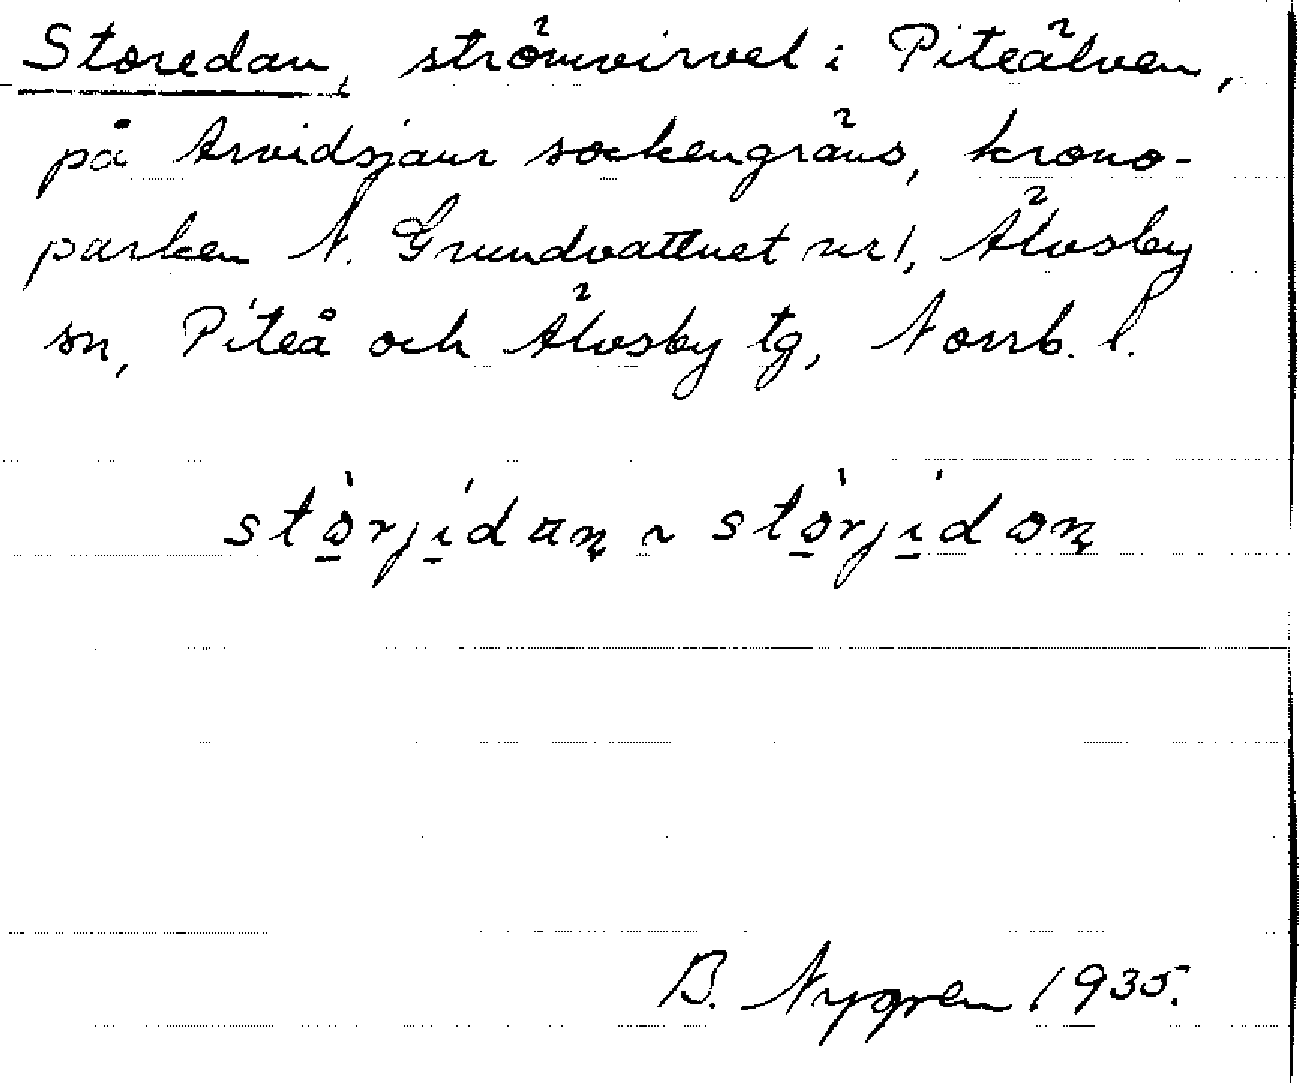 Storedan, strömvirvel i Piteälven,
på Arvidsjaur sockengräns, krono-
parken N. Grundvattnet nr 1, Älvsby
sn, Piteå och Älvsby tg, Norrb. l.
stò̱rjí̱dan̨ ~ stò̱rjí̱don̨
B. Nygren 1935.